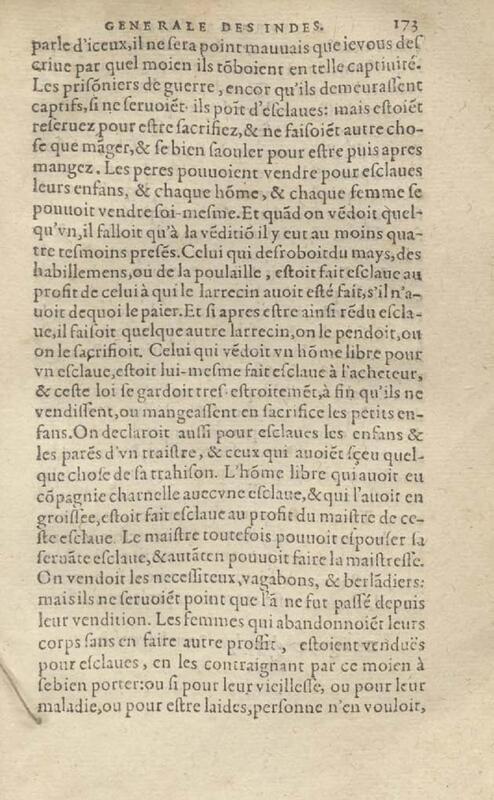 GENERALE DES INDES. 173
parle d'iceux,il ne ſera point mauuais que ievous deſ
criue par quel moien ils tõboient en telle captiuité.
Les priſõniers de guerre, encor qu'ils demeuraſſent
captifs,ſi ne ſeruoiẽt ils poĩt d'eſclaues: mais eſtoiẽt
reſeruez pour eſtre ſacrifiez,& ne faiſoiẽt autre cho-
ſe que mãger,& ſe bien ſaouler pour eſtre puis apres
mangez. Les peres pouuoient vendre pour eſclaues
leurs enfans, & chaque hõme, & chaque femme ſe
pouuoit vendre ſoi-meſme.Et quãd on vẽdoit quel-
qu'vn,il falloit qu'à la vẽditiõ il y eut au moins qua-
tre teſmoins preſẽs.Celui qui deſroboit du mays,des
habillemens,ou de la poulaille, eſtoit fait eſclaue au
profit de celui à qui le larrecin auoit eſté fait,s'il n'a-
uoit dequoi le paier.Et ſi apres eſtre ainſi rẽdu eſcla-
ue,il faiſoit quelque autre larrecin,on le pendoit,ou
on le ſacrifioit. Celui qui vẽdoit vn hõme libre pour
vn eſclaue,eſtoit lui-meſme fait eſclaue à l'acheteur,
& ceſte loi ſe gardoit treſ-eſtroitemẽt,à fin qu'ils ne
vendiſſent,ou mangeaſſent en ſacrifice les petits en-
fans.On declaroit auſſi pour eſclaues les enfans &
les parẽs d'vn traiſtre, & ceux qui auoiẽt ſçeu quel-
que choſe de ſa trahiſon. L'hõme libre qui auoit eu
cõpagnie charnelle auecvne eſclaue,& qui l'auoit en
groiſſée,eſtoit fait eſclaue au profit du maiſtre de ce-
ſte eſclaue. Le maiſtre toutefois pouuoit eſpouſer ſa
ſeruãte eſclaue,&autãten pouuoit faire la maiſtreſſe.
On vendoit les neceſſiteux,vagabons, & berlãdiers:
mais ils ne ſeruoiẽt point que l'ã ne fut paſſé depuis
leur vendition. Les femmes qui abandonnoiẽt leurs
corps ſans en faire autre proffit, eſtoient venduës
pour eſclaues, en les contraignant par ce moien à
ſebien porter:ou ſi pour leur vieilleſſe, ou pour leur
maladie,ou pour eſtre laides,perſonne n'en vouloit,